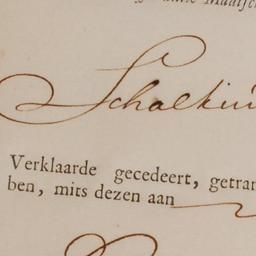 Schalkui
Verklaarde gecedeert, getran
ben, mits dezen aan